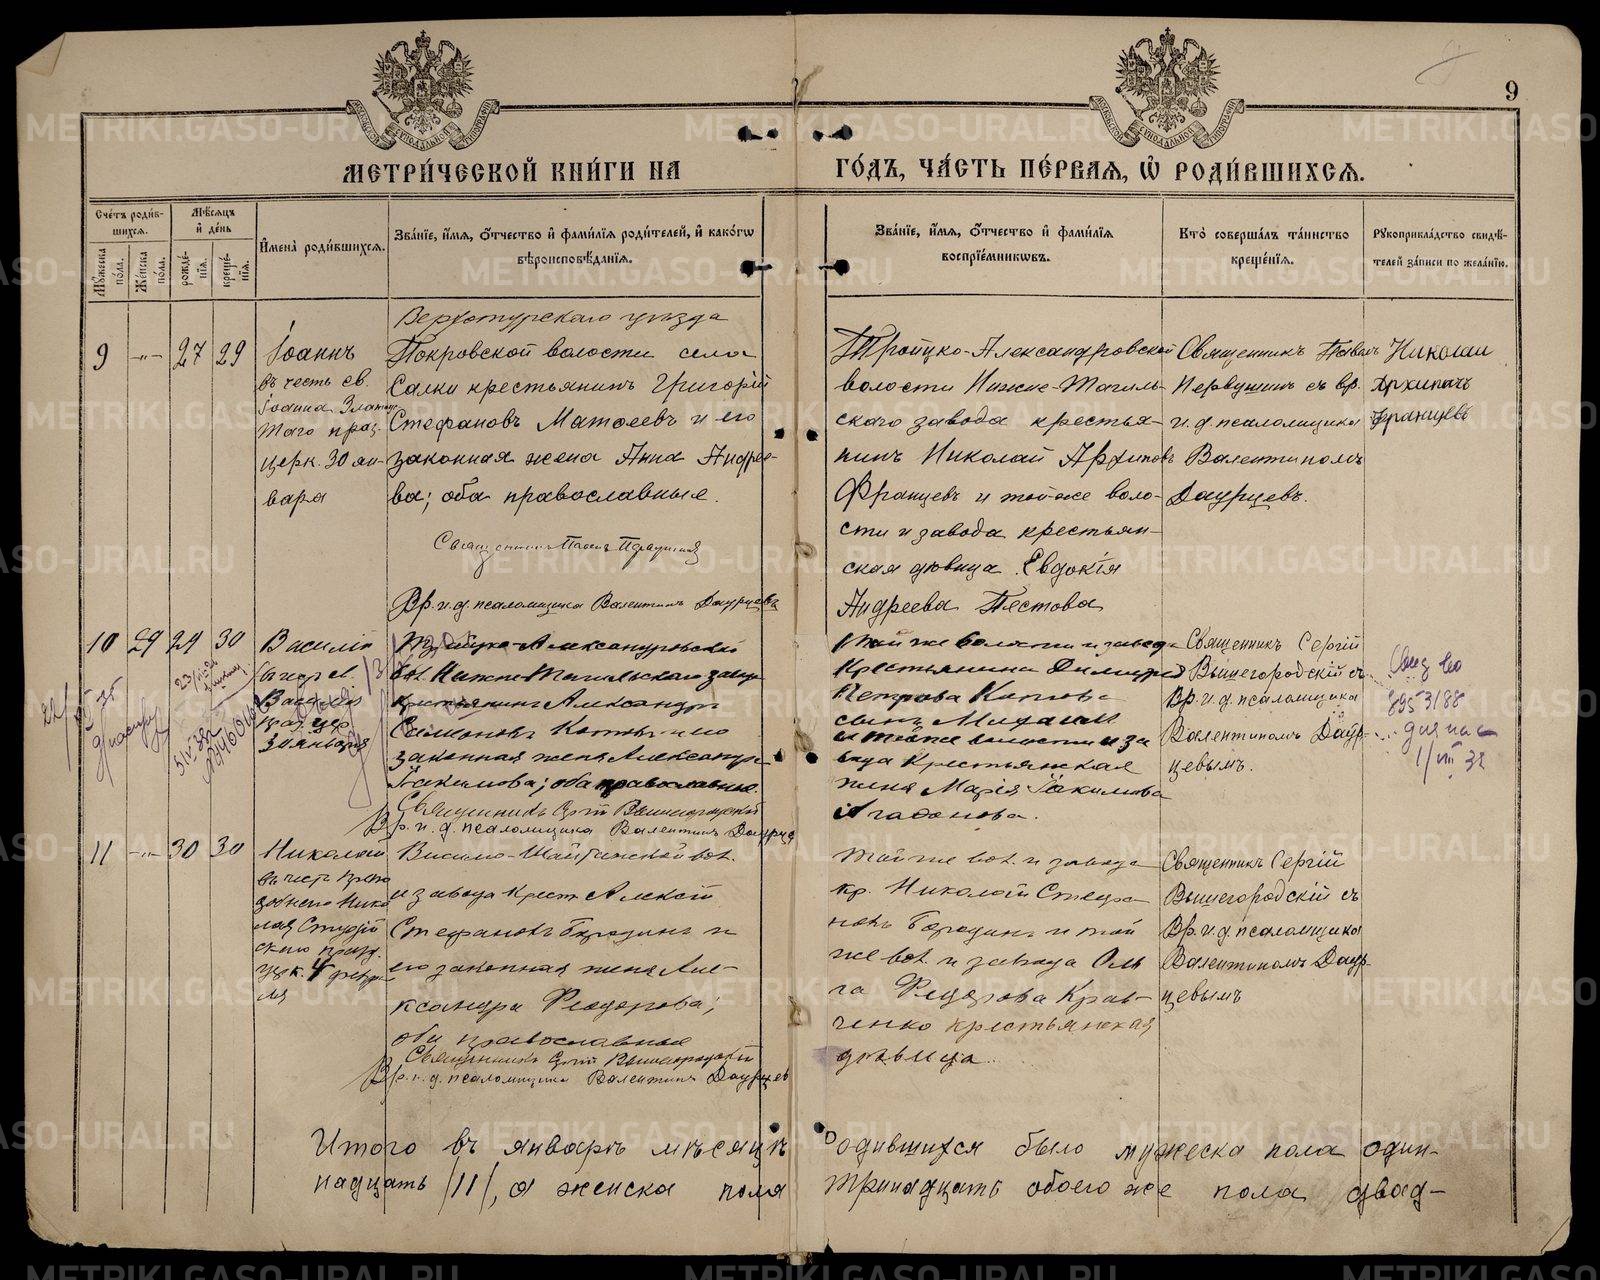 9
МЕТРИ́ЧЕСКОЙ КНИ́ГИ НА
ГО́ДЪ, ЧА́СТЬ ПЕ́РВАѦ, Ѡ҆ РОДИ́ВШИХСѦ.
Сче́тъ роди́в-
шихсѧ.
Мꙋ́жеска по́ла.
Же́нска по́ла.
Мѣ́сѧцъ
и҆ де́нь
рожде́-
нїѧ.
креще́-
нїѧ.
И҆мена̀ роди́вшихсѧ.
Зва́нїе, и҆́мѧ, ѻ҆́тчество и҆ фами́лїѧ роди́телей, и҆ како́гѡ
вѣроисповѣ́данїѧ.
Зва́нїе, и҆́мѧ, ѻ҆́тчество и҆ фами́лїѧ
воспрїе́мникѡвъ.
Кто̀ соверша́лъ та́инство
креще́нїѧ.
Рꙋкоприкла́дство свидѣ́-
телей за́писи по жела́нїю.
9 -"- 27 29
Іоаннъ
въ честь св.
Іоанна
таго праз.
церк. 30 ян-
варя
Верхотурскаго уѣзда
Покровской волости села
Салки крестьянинъ Григорій
Стефановъ Матвеевъ и его
законная жена Анна Андрее-
ва; оба православные.
Священникъ Павелъ Первушинъ
Вр. и. д. псаломщика Валентинъ Даурцевъ
Троицко-Александровской
волости Нижне-Тагиль-
скаго завода крестья-
нинъ Николай Архиповъ
Францевъ и тойже воло-
сти и завода крестьян-
ская дѣвица Евдокія
Андреева Пестова
Священникъ Павелъ
Первушинъ съ вр.
и. д. псаломщика
Валентиномъ
Даурцевъ.
Николаи
Архипачъ
Францевъ
10 29 30
Василій
30 января
Троицко-Александровской
вол. Нижне-Тагильскаго завода
крестьянинъ Александръ
Симоновъ Котовъ и его
законная жена Александра
Іакимова; оба православные.
Священникъ Сергій Вышегородскій
Вр. и. д. псаломщика Валентинъ Даурцев
Той же волости и завода
Крестьянина Димитрія
Петрова Котова
сынъ Михаилъ
и тойже волости и за
вода Крестьянская
жена Марія Іакимова
Агафонова.
Священникъ Сергій
Вышегородскій съ
Вр. и. д. псаломщика
Валентиномъ Даур-
цевымъ.
8953188
11 -"- 30 30
Николай
въ честь
добнаго Нико
лая Студій
скаго празд.
церк. 4 февра-
ля
Висимо-Шайтанской вол.
и завода Крест. Алексій
Стефановъ Бородинъ и
его законная жена Але-
ксандра Феодорова;
оба православные
Священникъ Сергій Вышегородскій
Вр. и. д. псаломщика Валентинъ Даурцев
Той же вол. и завода
кр. Николай Стефа-
новъ Бородинъ и той
же вол. и завода Оль
га Федорова Крав-
ченко крестьянская
дѣвица.
Священникъ Сергій
Вышегородскій съ
Вр. и. д. псаломщика
Валентиномъ Даур-
цевымъ
Итого въ январѣ мѣсяцѣ родившихся было мужеска пола один-
надцать /11/, а женска пола тринадцать обоего же пола двад-
METRIKI.GASO-URAL.RU